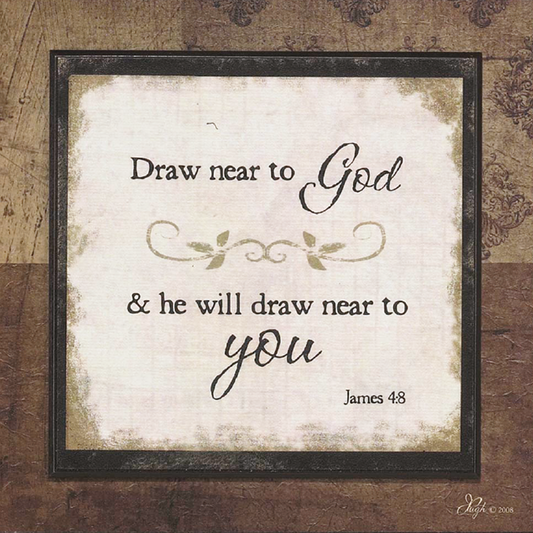 Draw near to God
& he will draw near to
you
James 4:8
© 2008